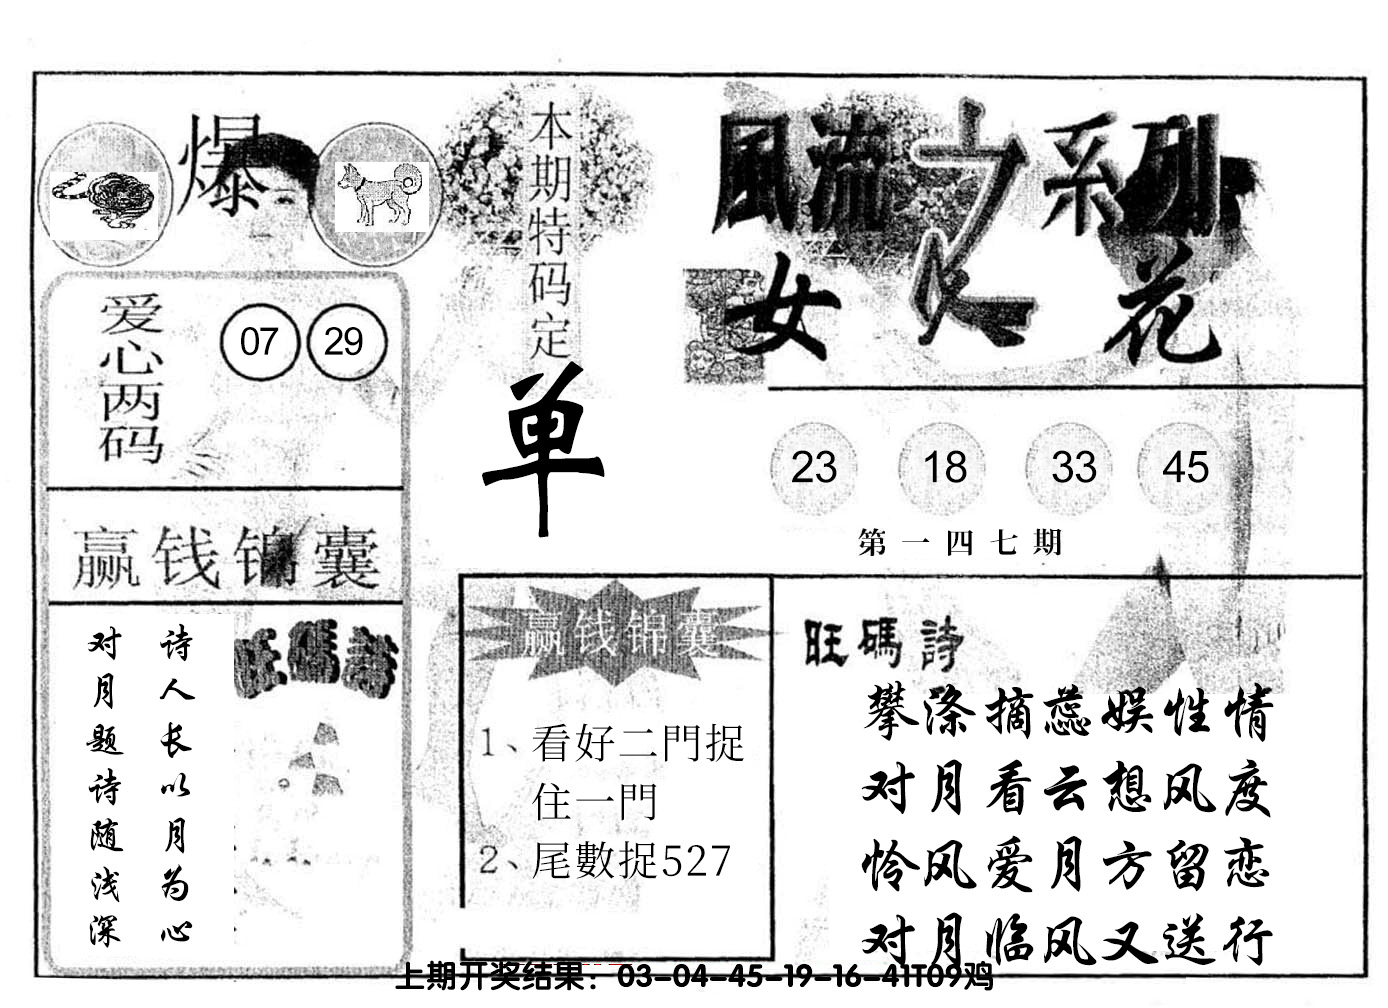 爆
本期特码定
单
風流之系列
女人花
爱心两码
07 29
23 18 33 45
第一四七期
赢钱锦囊
诗人长以月为心
对月题诗随浅深
旺碼詩
赢钱锦囊
1、看好二門捉
住一門
2、尾數捉527
旺碼詩
攀涤摘蕊娱性情
对月看云想风度
怜风爱月方留恋
对月临风又送行
上期开奖结果：03-04-45-19-16-41T09鸡